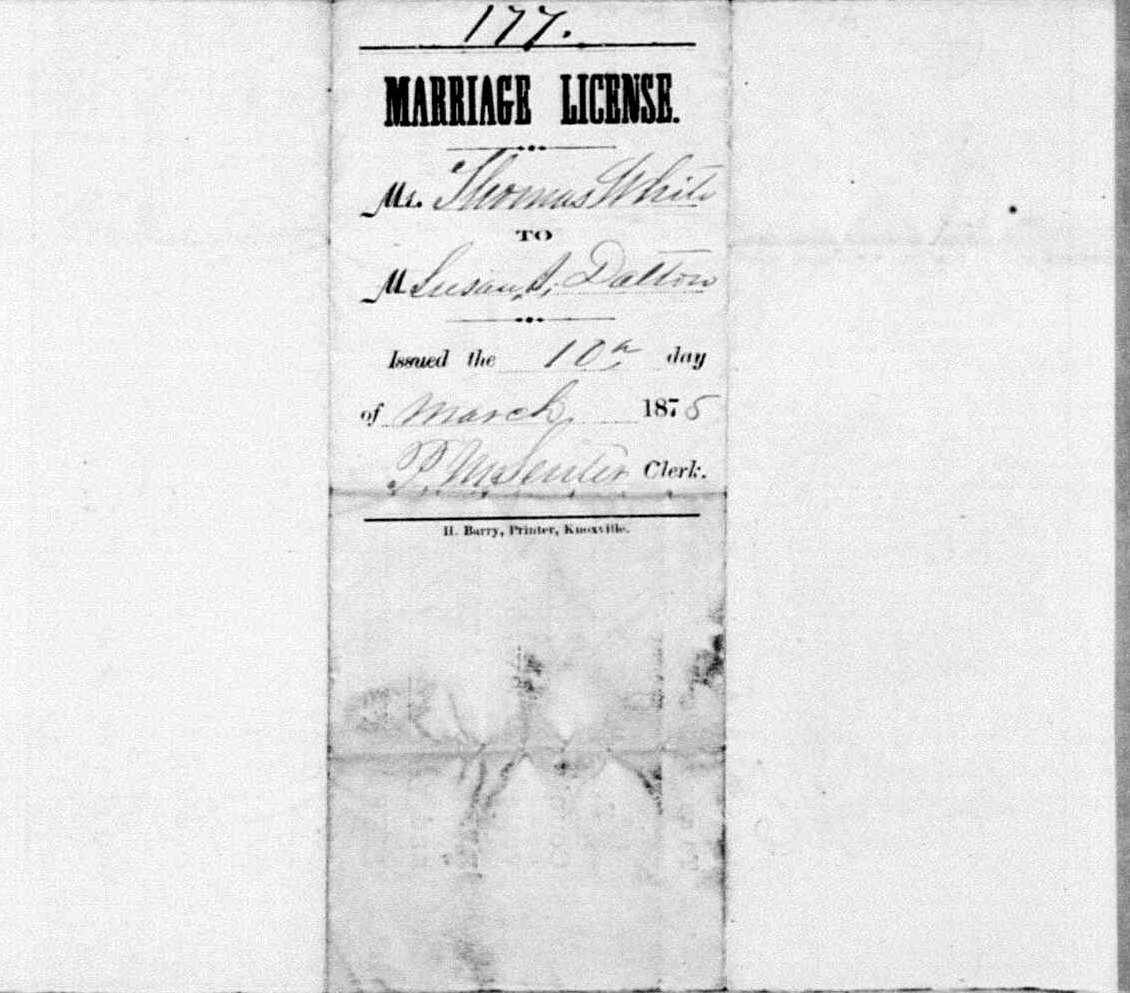 177.
MARRIAGE LICENSE.
Mr. Thomas White
TO
M Susan A. Dalton
Issued the 10th day
of March 1875
P. M. Senter Clerk.
H. Barry, Printer, Knoxville.